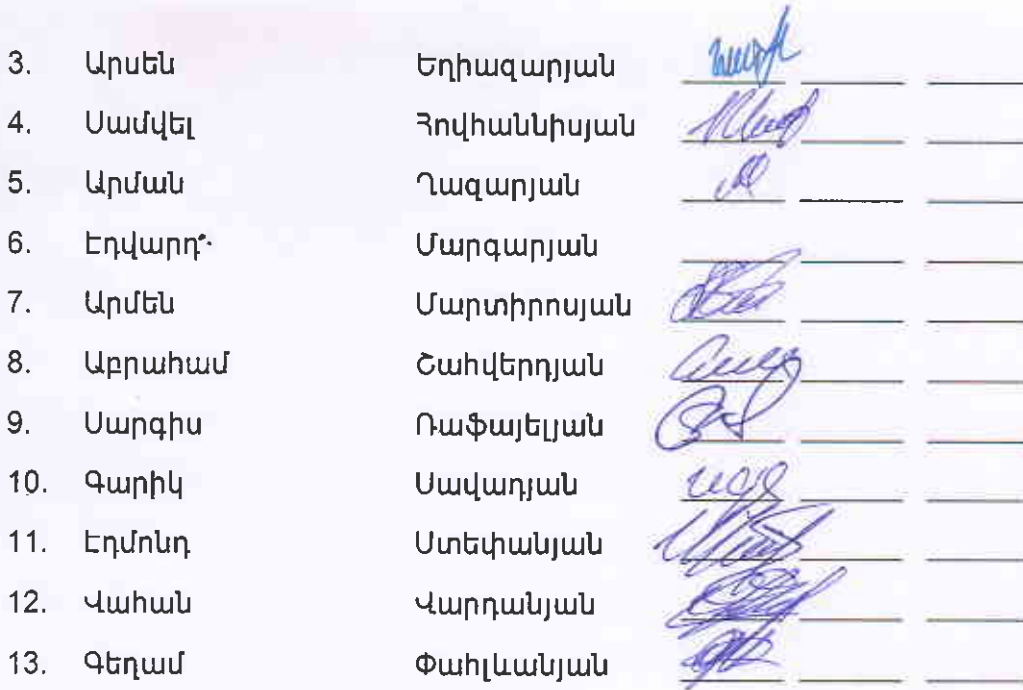 3. Արսեն Եղիազարյան
4. Սամվել Հովհաննիսյան
5. Արման Ղազարյան
6. Էդվարդ Մարգարյան
7. Արմեն Մարտիրոսյան
8. Աբրահամ Շահվերդյան
9. Սարգիս Ռաֆայելյան
10. Գարիկ Սավադյան
11. Էդմոնդ Ստեփանյան
12. Վահան Վարդանյան
13. Գեղամ Փահլևանյան